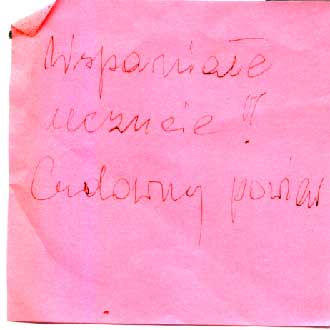 Wspaniałe
uczucie!!
Cudowny powiew